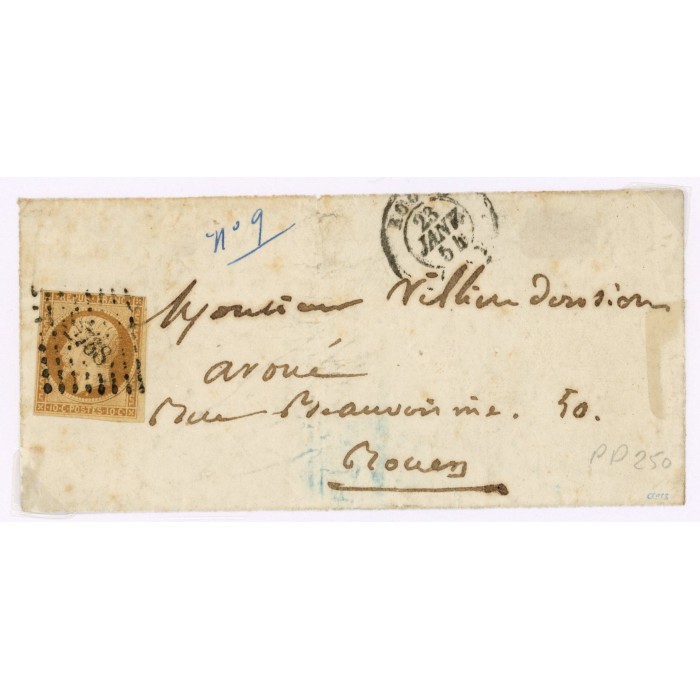 n° 9
23
JANV
5
REPUB FRANC
10·C·POSTES·10·C
Monsieur Villiers
avoué
Rue Beauvoisine. 50.
Rouen
PD 250